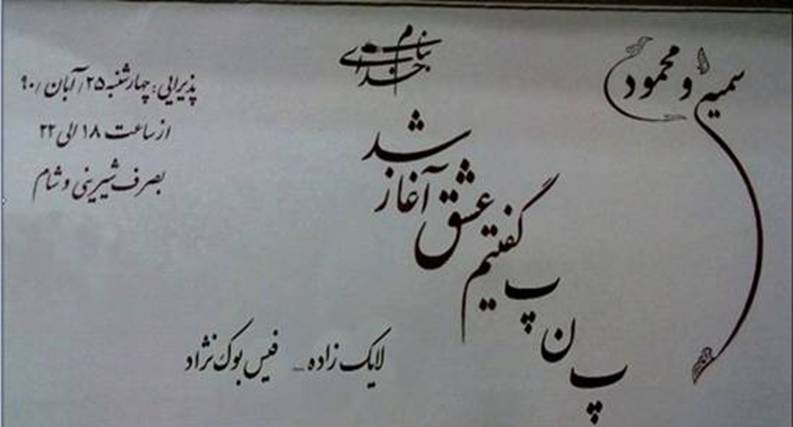 بنام خدای
سمیه و محمود
پ ن پ گفتیم عشق آغاز شد
پذیرایی: چهارشنبه ۲۵/ آبان /۹۰
از ساعت ۱۸ الی ۲۲
بصرف شیرینی و شام
لایک زاده - فیس بوک نژاد